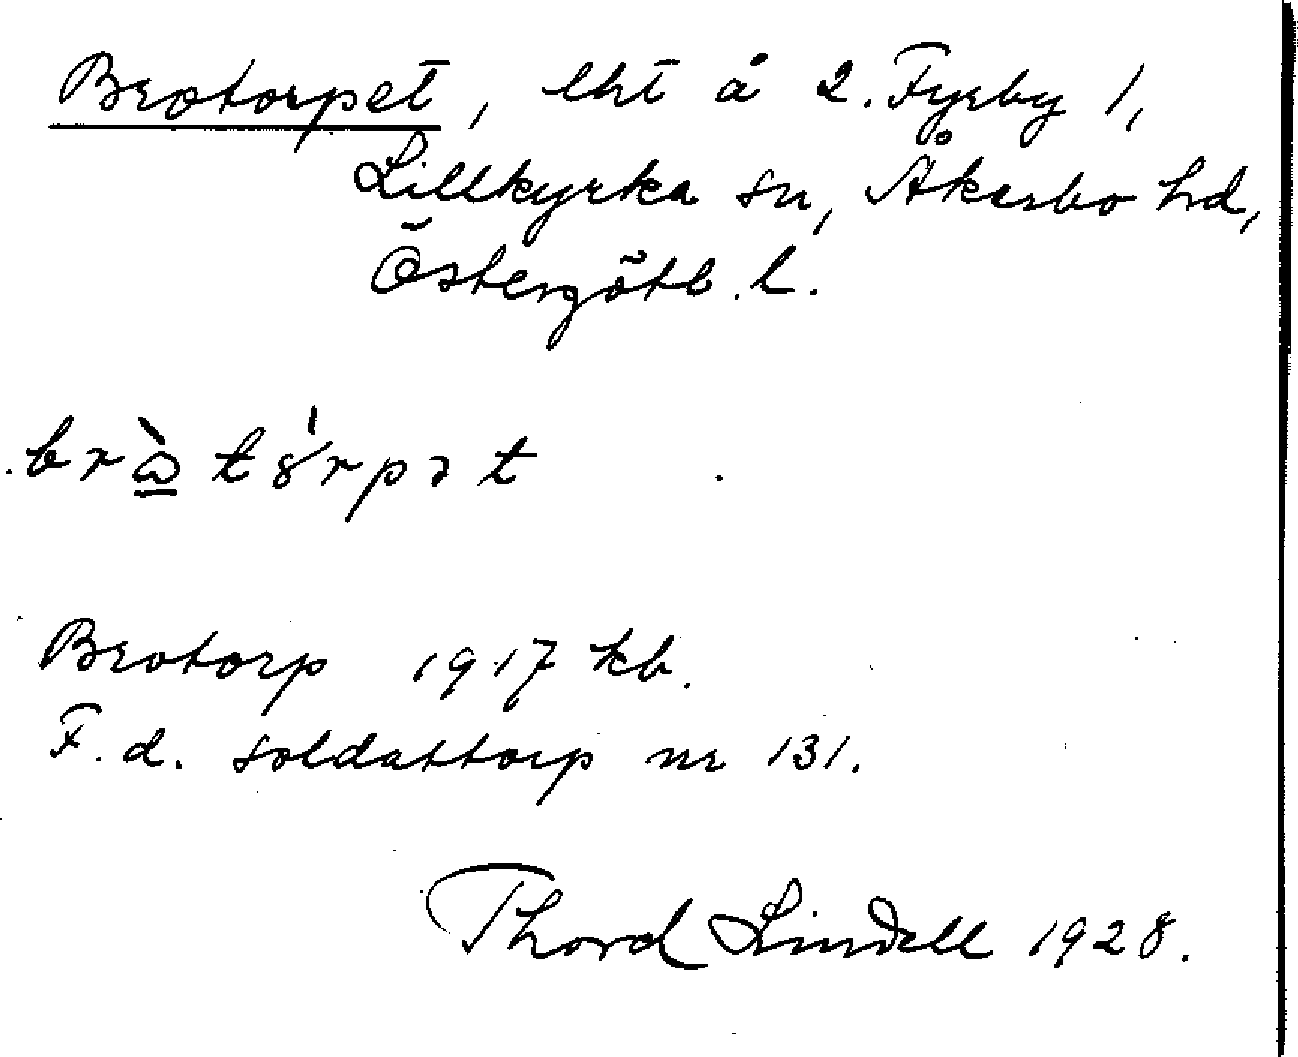 Brotorpet, lht å 2. Fyrby 1,
Lillkyrka sn, Åkerbo hd,
Östergötl. l.
Brotorp 1917 kb.
F. d. soldattorp nr 131.
Thord Lindell 1928.